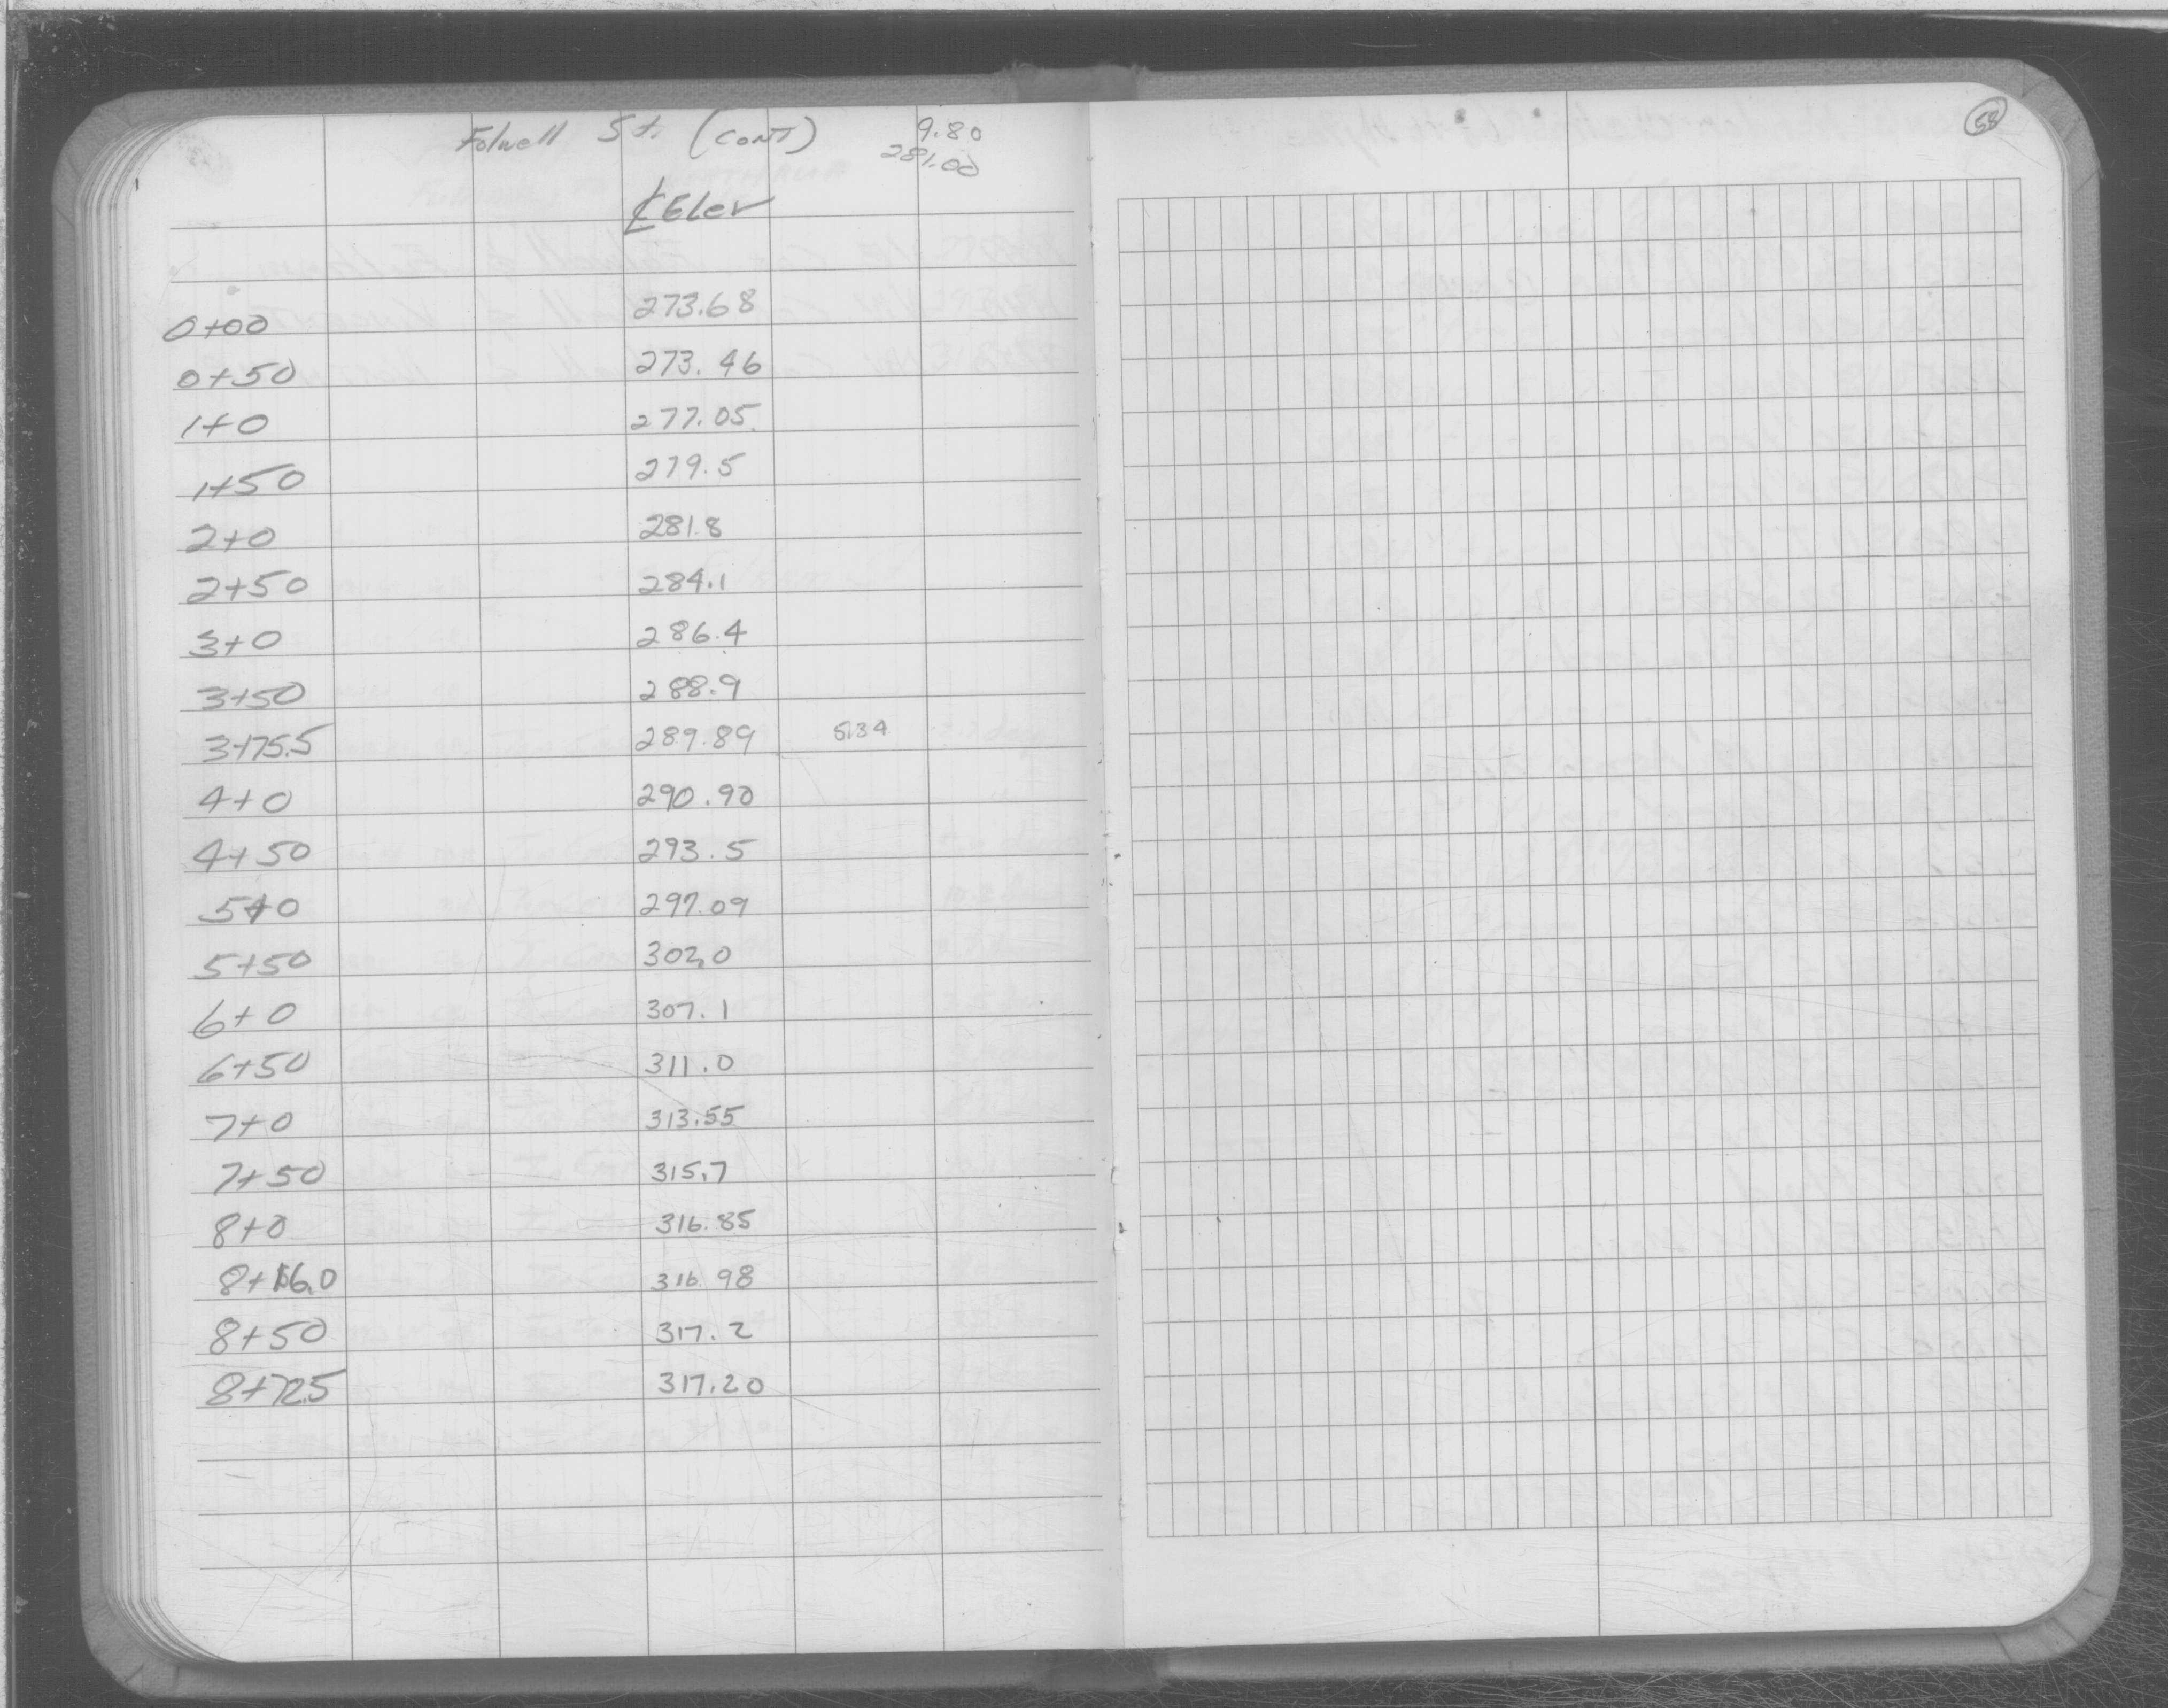 Folwell St. (CONT) 9.80
281.00
58
℄ Elev
0+00 273.68
0+50 273.46
1+0 277.05
1+50 279.5
2+0 281.8
2+50 284.1
3+0 286.4
3+50 288.9
3+75.5 289.89 5.34
4+0 290.90
4+50 293.5
5+0 297.09
5+50 302.0
6+0 307.1
6+50 311.0
7+0 313.55
7+50 315.7
8+0 316.85
8+16.0 316.98
8+50 317.2
8+72.5 317.20